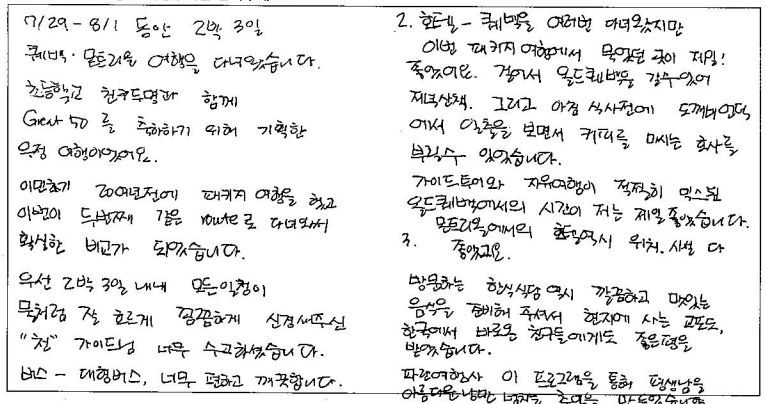 7/29-8/1 동안 2박 3일
퀘벡·몬트리올 여행을 다녀왔습니다.
초등학교 친구두명과 함께
Great 50 를 축하하기 위해 기획한
우정 여행이었어요.
이민초기 20여년전에 패키지 여행을 했고
이번이 두번째 같은 route로 다녀와서
확실한 비교가 되었습니다.
우선 2박 3일 내내 모든일정이
물처럼 잘 흐르게 꼼꼼하게 신경써주신
"천" 가이드님 너무 수고하셨습니다.
버스 - 대형버스, 너무 편하고 깨끗합니다.
2. 호텔 - 퀘벡을 여러번 다녀왔지만
이번 패키지 여행에서 묵었던 곳이 제일!
좋았어요. 걸어서 올드퀘백을 갈수있어
저녁산책. 그리고 아침 식사전에 도깨비언덕
에서 일출을 보면서 커피를 마시는 호사를
부릴수 있었습니다.
가이드투어와 자유여행이 적절히 믹스된
올드퀘백에서의 시간이 저는 제일 좋았습니다.
몬트리올에서의 호텔역시 위치. 시설 다
3. 좋았고요.
방문하는 한식식당 역시 깔끔하고 맛있는
음식을 준비해 주셔서 현지에 사는 교포도,
한국에서 바로온 친구들에게도 좋은평을
받았습니다.
파란여행사 이 프로그램을 통해 평생남을
아름다운